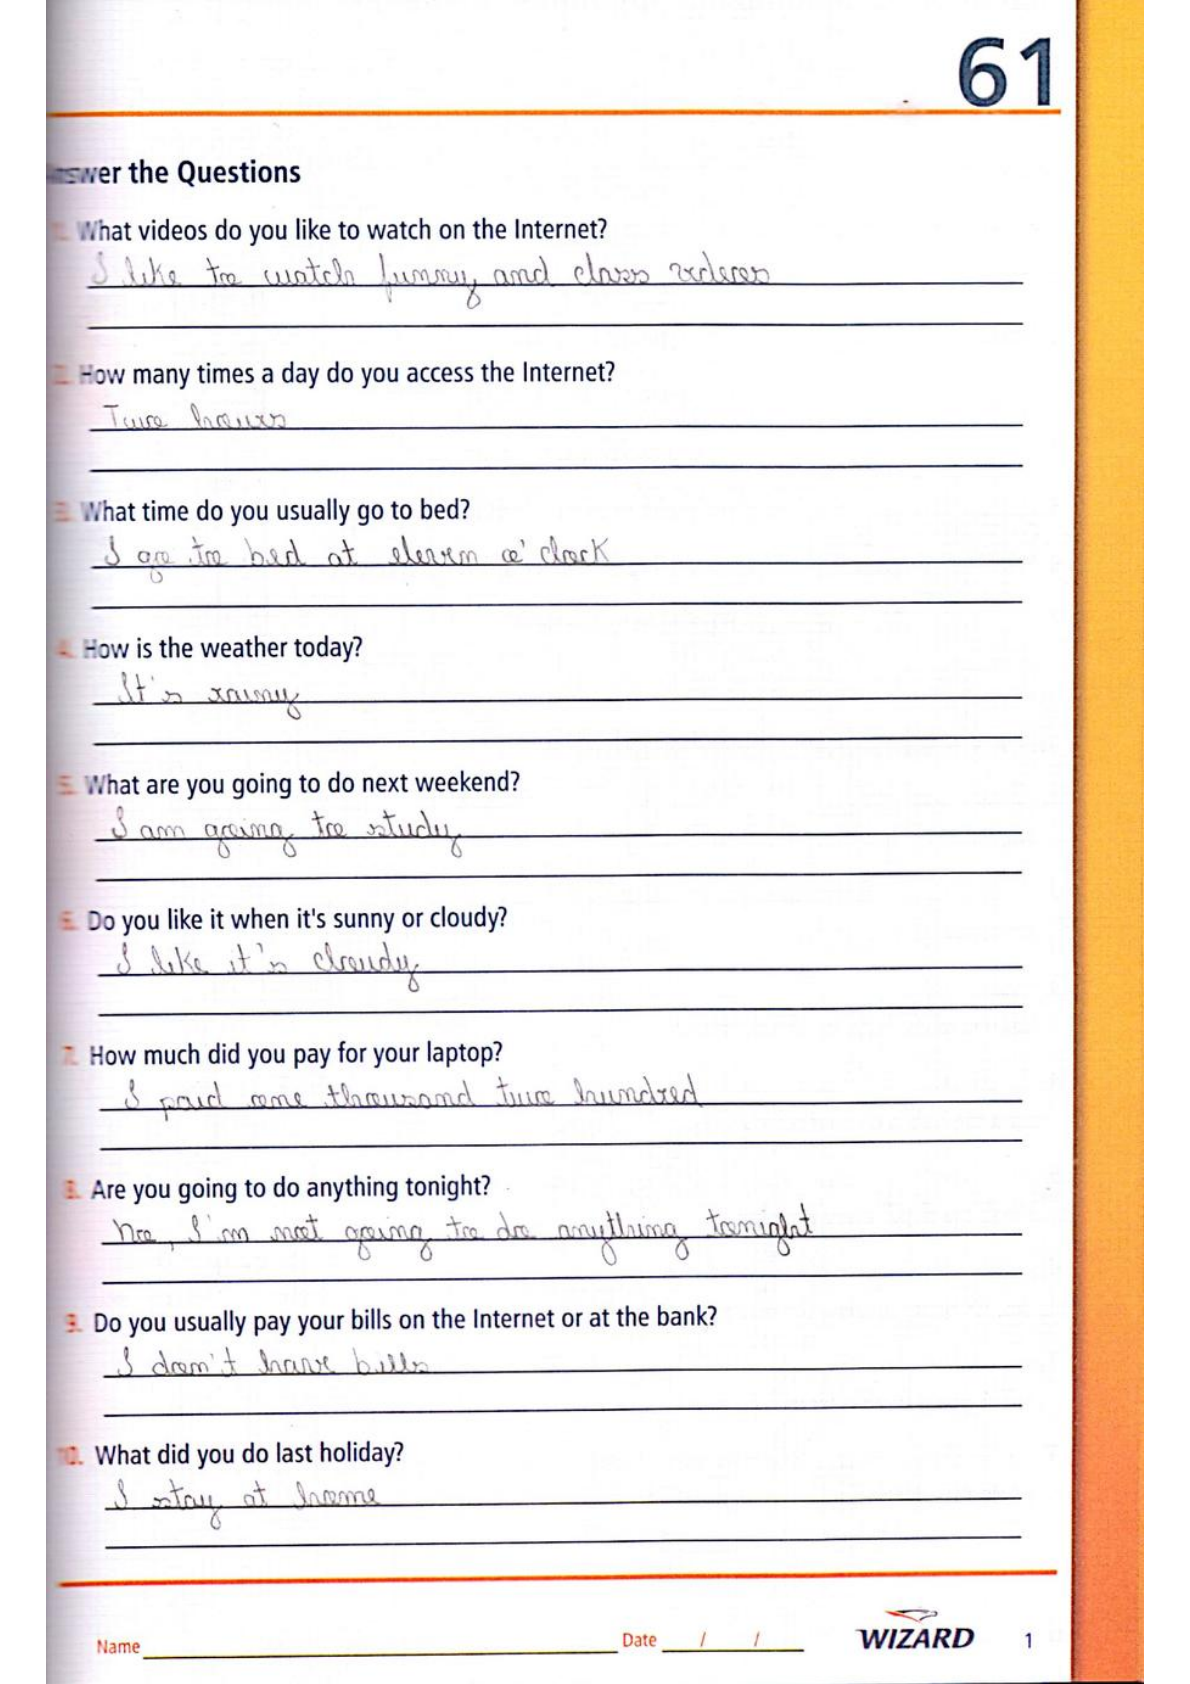 61
Answer the Questions
1. What videos do you like to watch on the Internet?
I like to watch funny and class videos
2. How many times a day do you access the Internet?
Two hours
3. What time do you usually go to bed?
I go to bed at eleven o'clock
4. How is the weather today?
It's rainy
5. What are you going to do next weekend?
I am going to study
6. Do you like it when it's sunny or cloudy?
I like it's cloudy
7. How much did you pay for your laptop?
I paid one thousand two hundred
8. Are you going to do anything tonight?
No, I'm not going to do anything tonight
9. Do you usually pay your bills on the Internet or at the bank?
I don't have bills
10. What did you do last holiday?
I stay at home
Name Date / / WIZARD 1